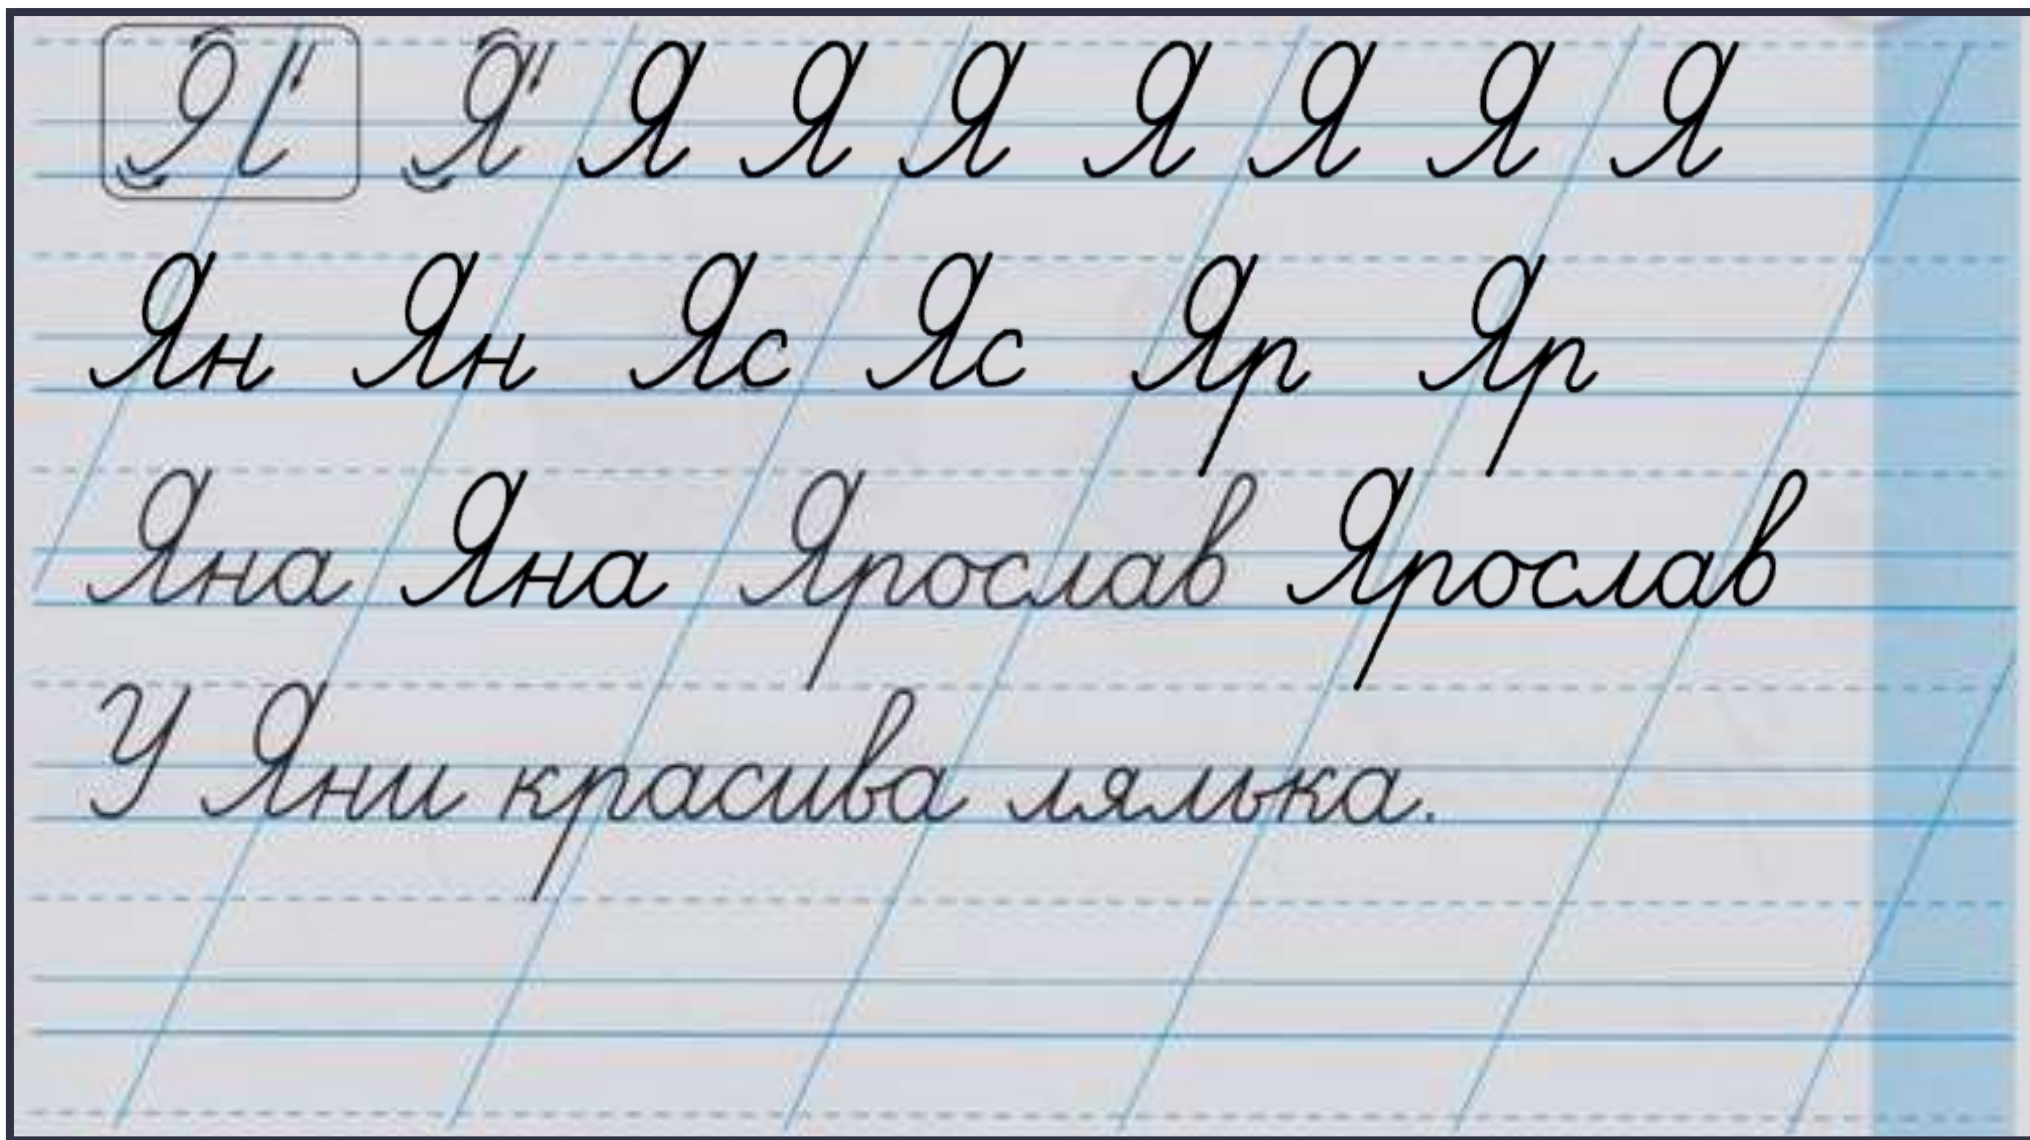 Я Я Я Я Я Я Я Я Я
Ян Ян Яс Яс Яр Яр
Яна Яна Ярослав Ярослав
У Яни красива лялька.